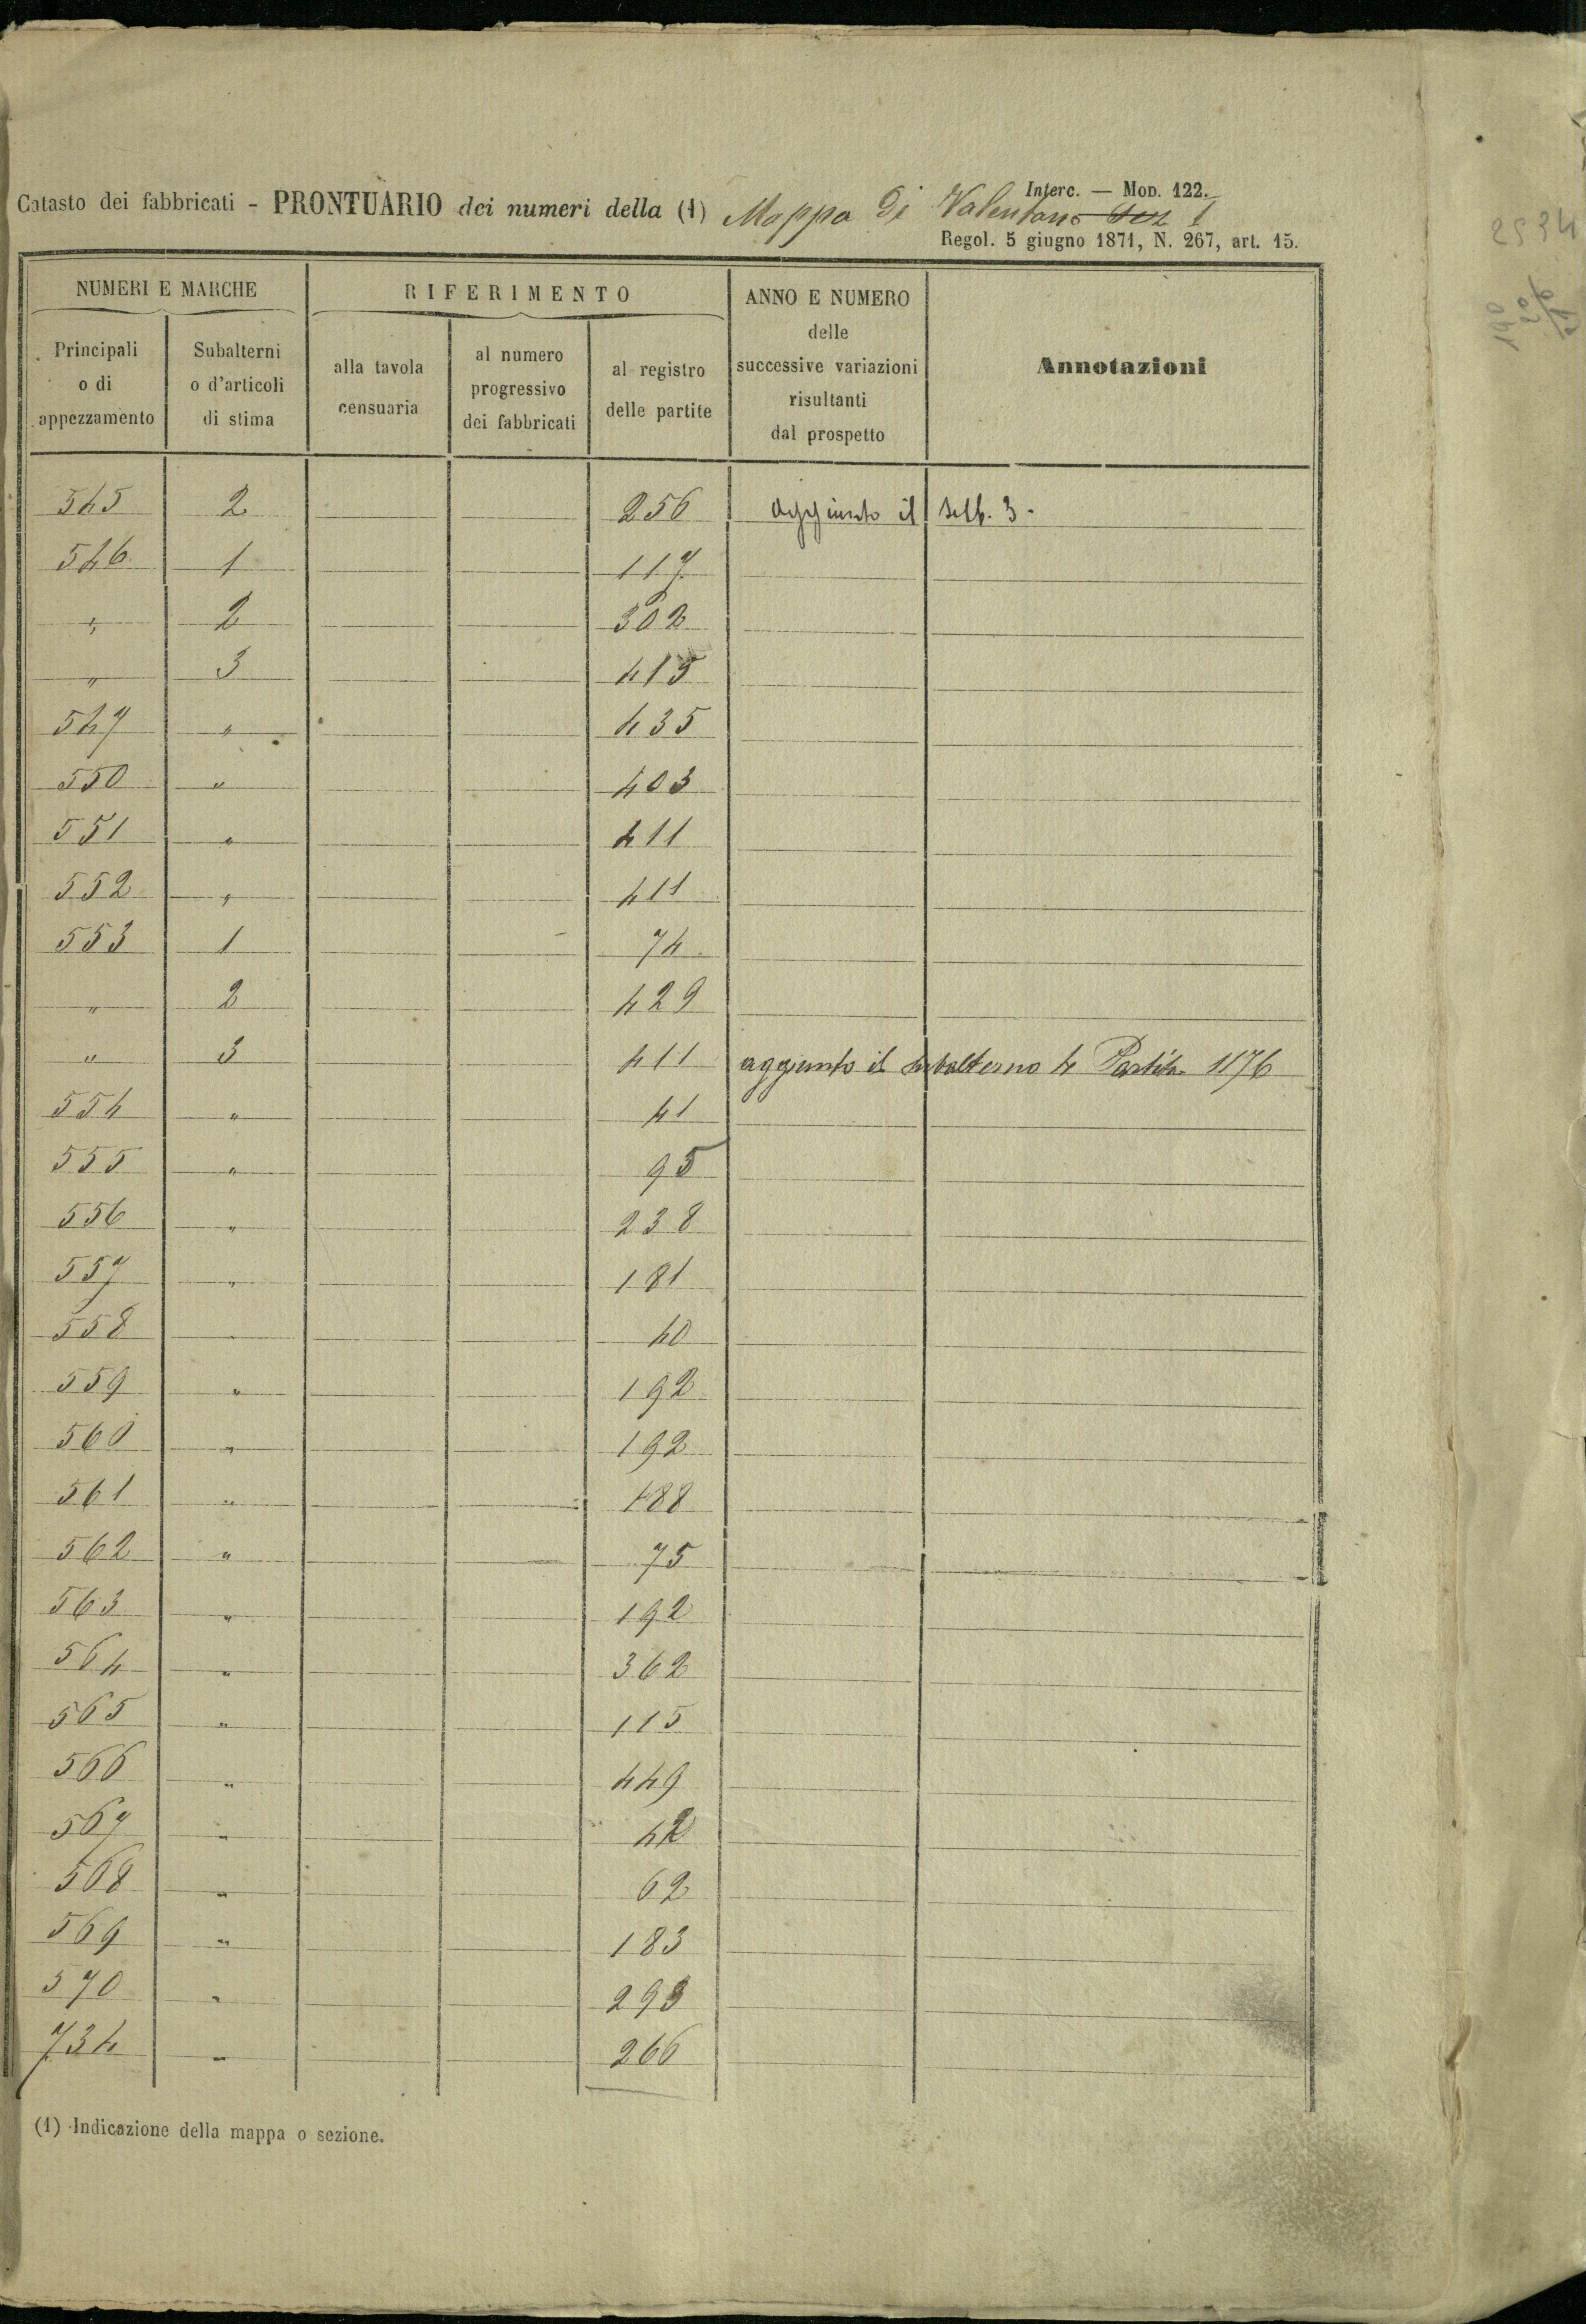 Interc. — Mod. 122.
Catasto dei fabbricati - PRONTUARIO dei numeri della (1) Mappa di Valentano Sez I
Regol. 5 giugno 1871, N. 267, art. 15.
NUMERI E MARCHE RIFERIMENTO ANNO E NUMERO delle successive variazioni risultanti dal prospetto Annotazioni
Principali o di appezzamento Subalterni o d'articoli di stima alla tavola censuaria al numero progressivo dei fabbricati al registro delle partite
545 2 256 aggiunto il sub. 3.
546 1 117
" 2 302
" 3 415
547 " 435
550 " 403
551 " 411
552 " 411
553 1 74
" 2 429
" 3 411 aggiunto il subalterno 4 Partita 1176
554 " 41
555 " 95
556 " 238
557 " 181
558 " 40
559 " 192
560 " 192
561 " 188
562 " 75
563 " 192
564 " 362
565 " 115
566 " 449
567 " 42
568 " 62
569 " 183
570 " 293
734 " 266
(1) Indicazione della mappa o sezione.
2534